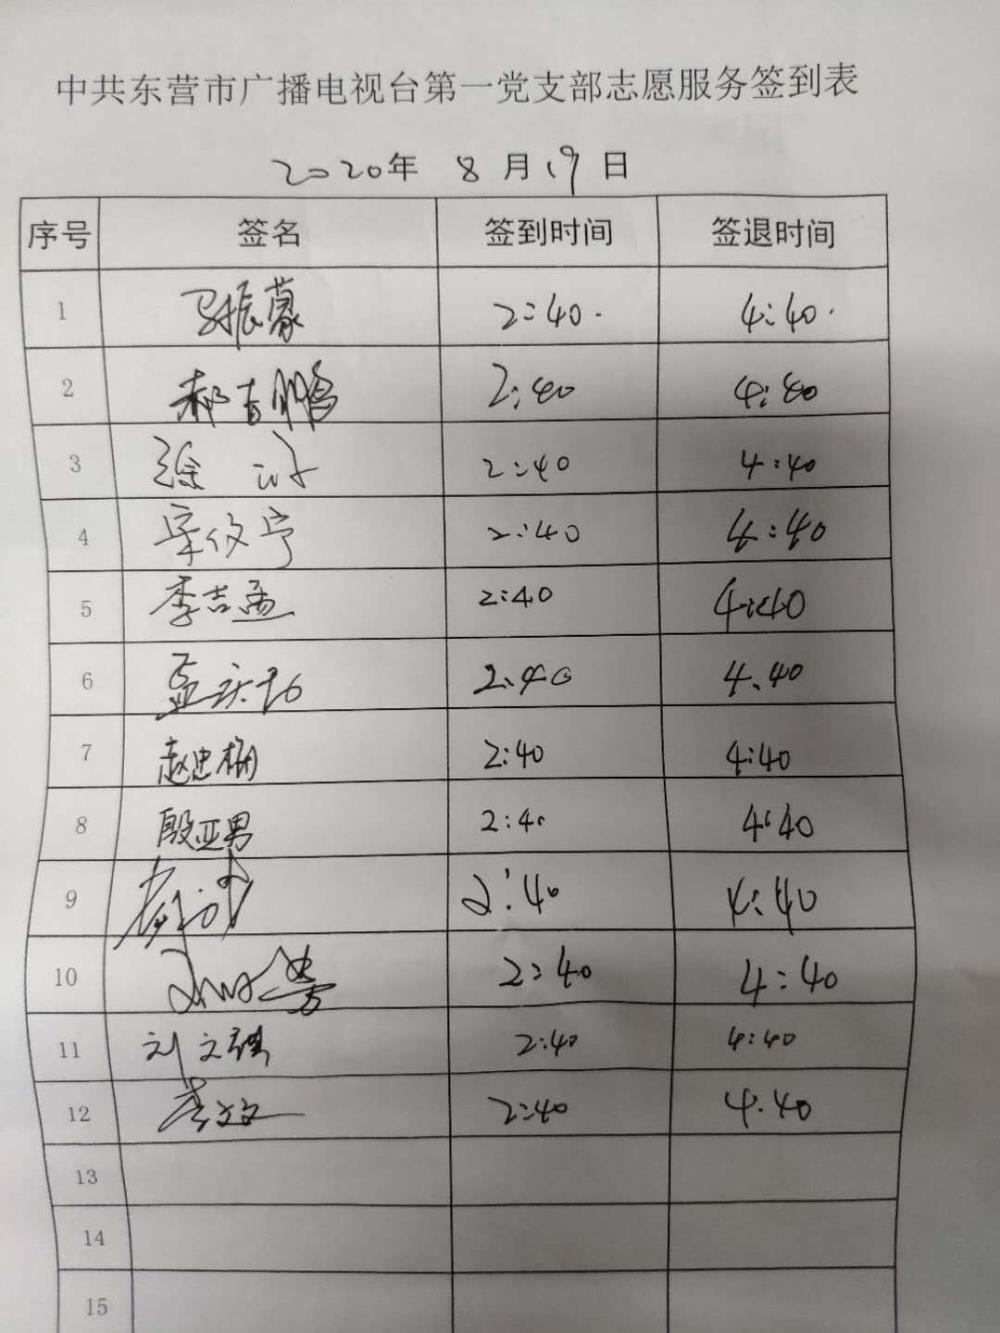 中共东营市广播电视台第一党支部志愿服务签到表
2020年 8月19日
序号 签名 签到时间 签退时间
1 马振蒙 2:40. 4:40.
2 郝吉鹏 2:40 4:40
3 徐 冰 2:40 4:40
4 2:40 4:40
5 季吉孟 2:40 4:40
6 2.40 4.40
7 2:40 4:40
8 殷亚男 2:40 4:40
9 2:40 4:40
10 2:40 4:40
11 刘文 2:40 4:40
12 2:40 4.40
13
14
15